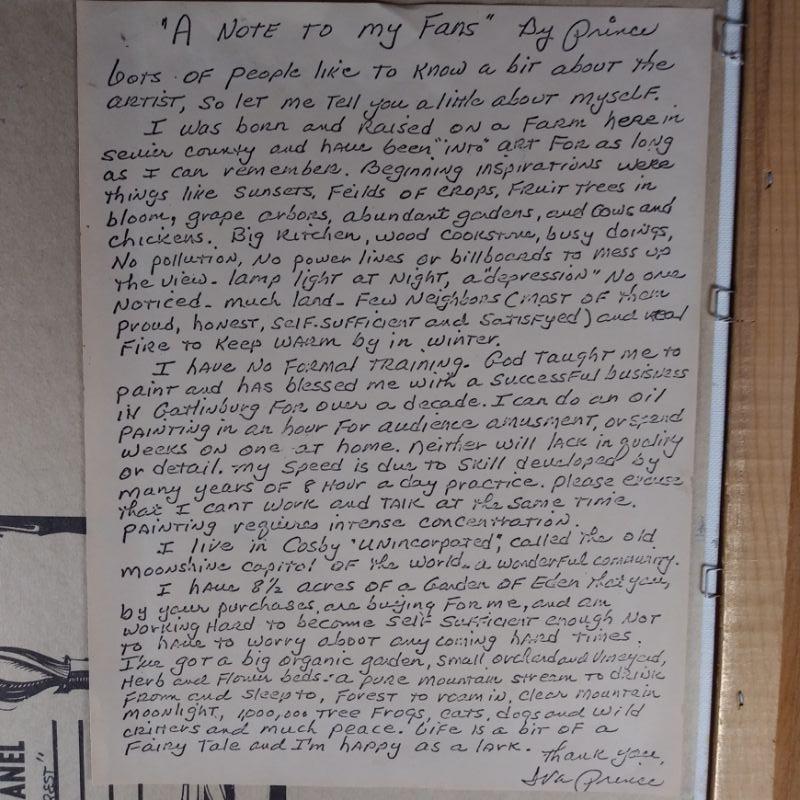 "A NOTE TO my FANS" By Prince
Lots OF People like TO Know a bit about the
ARTIST, So let me Tell you a little about myself.
I was born and Raised on a Farm here in
Sevier County and have been "INTO" ART FOR as long
as I can remember. Beginning inspirations were
things like Sunsets, Feilds of crops, Fruit Trees in
bloom, grape arbors, abundant gardens, and Cows and
chickens. Big Kitchen, wood cookstove, busy doings,
No pollution, No power lines or billboards to mess up
the view - lamp light at Night, a "depression" No one
Noticed - much land - Few Neighbors (most of them
proud, honest, self-sufficient and Satisfyed) and real
Fire to Keep warm by in winter.
I have No Formal TRAINING. God Taught me to
paint and has blessed me with a Successful business
in Gatlinburg For over a decade. I can do an oil
PAINTING in an hour For audience amusment, or spend
weeks on one at home. Neither will lack in quality
or detail. My Speed is due to Skill developed by
many years of 8 Hour a day practice. Please excuse
that I cant work and TALK at the Same Time.
PAINTING requires intense concentration.
I live in Cosby "UNincorpated", called the old
moonshine capitol of the world - a wonderful community.
I have 8½ acres of a Garden of Eden that you,
by your purchases, are buying For me, and am
working Hard to become Self Sufficient enough Not
to have to worry aboot any coming hard times.
I've got a big organic garden, small orchard and vineyard,
Herb and Flower beds - a pure mountain stream to drink
From and sleep to, Forest to roam in, clear mountain
moonlight, 1,000,000 Tree Frogs, cats, dogs and wild
critters and much peace. Life is a bit of a
Fairy Tale and I'm happy as a lark.
Thank you,
Iva Prince
ANEL
REST"